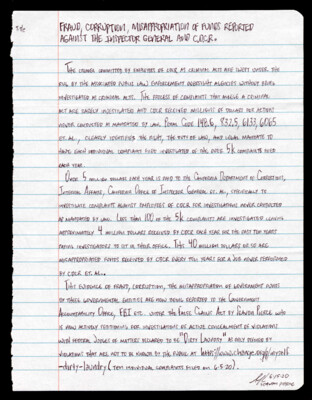 FRAUD, CORRUPTION, MISAPPROPRIATION OF FUNDS REPORTED
AGAINST THE INSPECTOR GENERAL AND CDCR.
THE CRIMES COMMITTED BY EMPLOYEES OF CDCR AS CRIMINAL ACTS ARE SWEPT UNDER THE
RUG BY THE ASSOCIATED PUBLIC LAW ENFORCEMENT OVERSIGHT AGENCIES WITHOUT BEING
INVESTIGATED AS CRIMINAL ACTS. THE PROCESS OF COMPLAINTS THAT ALLEGE A CRIMINAL
ACT ARE RARELY INVESTIGATED AND CDCR RECEIVES MILLIONS OF DOLLARS FOR ACTIONS
NEVER CONDUCTED AS MANDATED BY LAW. PENAL CODE 148.6, 832.5, 6133, 6065
ET. AL., CLEARLY IDENTIFIES THE RIGHT, THE DUTY OF LAW, AND LEGAL MANDATE TO
HAVE EACH INDIVIDUAL COMPLAINT FILED INVESTIGATED OF THE OVER 5K COMPLAINTS FILED
EACH YEAR.
OVER 5 MILLION DOLLARS EACH YEAR IS PAID TO THE CALIFORNIA DEPARTMENT OF CORRECTIONS,
INTERNAL AFFAIRS, CALIFORNIA OFFICE OF INSPECTOR GENERAL ET. AL., SPECIFICALLY TO
INVESTIGATE COMPLAINTS AGAINST EMPLOYEES OF CDCR FOR INVESTIGATIONS NEVER CONDUCTED
AS MANDATED BY LAW. LESS THAN 100 OF THE 5K COMPLAINTS ARE INVESTIGATED LEAVING
APPROXIMATELY 4 MILLION DOLLARS RECEIVED BY CDCR EACH YEAR FOR THE PAST TEN YEARS
PAYING INVESTIGATORS TO SIT IN THEIR OFFICE. THIS 40 MILLION DOLLARS OR SO ARE
MISAPPROPRIATED FUNDS RECEIVED BY CDCR EVERY TEN YEARS FOR A JOB NEVER PERFORMED
BY CDCR ET. AL..
THIS EVIDENCE OF FRAUD, CORRUPTION, THE MISAPPROPRIATION OF GOVERNMENT FUNDS
BY THESE GOVERNMENTAL ENTITIES ARE NOW BEING REPORTED TO THE GOVERNMENT
ACCOUNTABILITY OFFICE, FBI ETC. UNDER THE FALSE CLAIMS ACT BY PIERCE WHO
IS NOW ACTIVELY PETITIONING FOR INVESTIGATIONS OF ACTIVE CONCEALMENT OF VIOLATIONS
WITH FEDERAL JUDGES OF MATTERS DECLARED TO BE "DIRTY LAUNDRY" AS ONLY DEFINED BY
VIOLATIONS THAT ARE NOT TO BE KNOWN BY THE PUBLIC AT https://www.change.org/p/
-dirty-laundry (TEN INDIVIDUAL COMPLAINTS FILED ON 6-5-20).
6-15-20
PIERCE